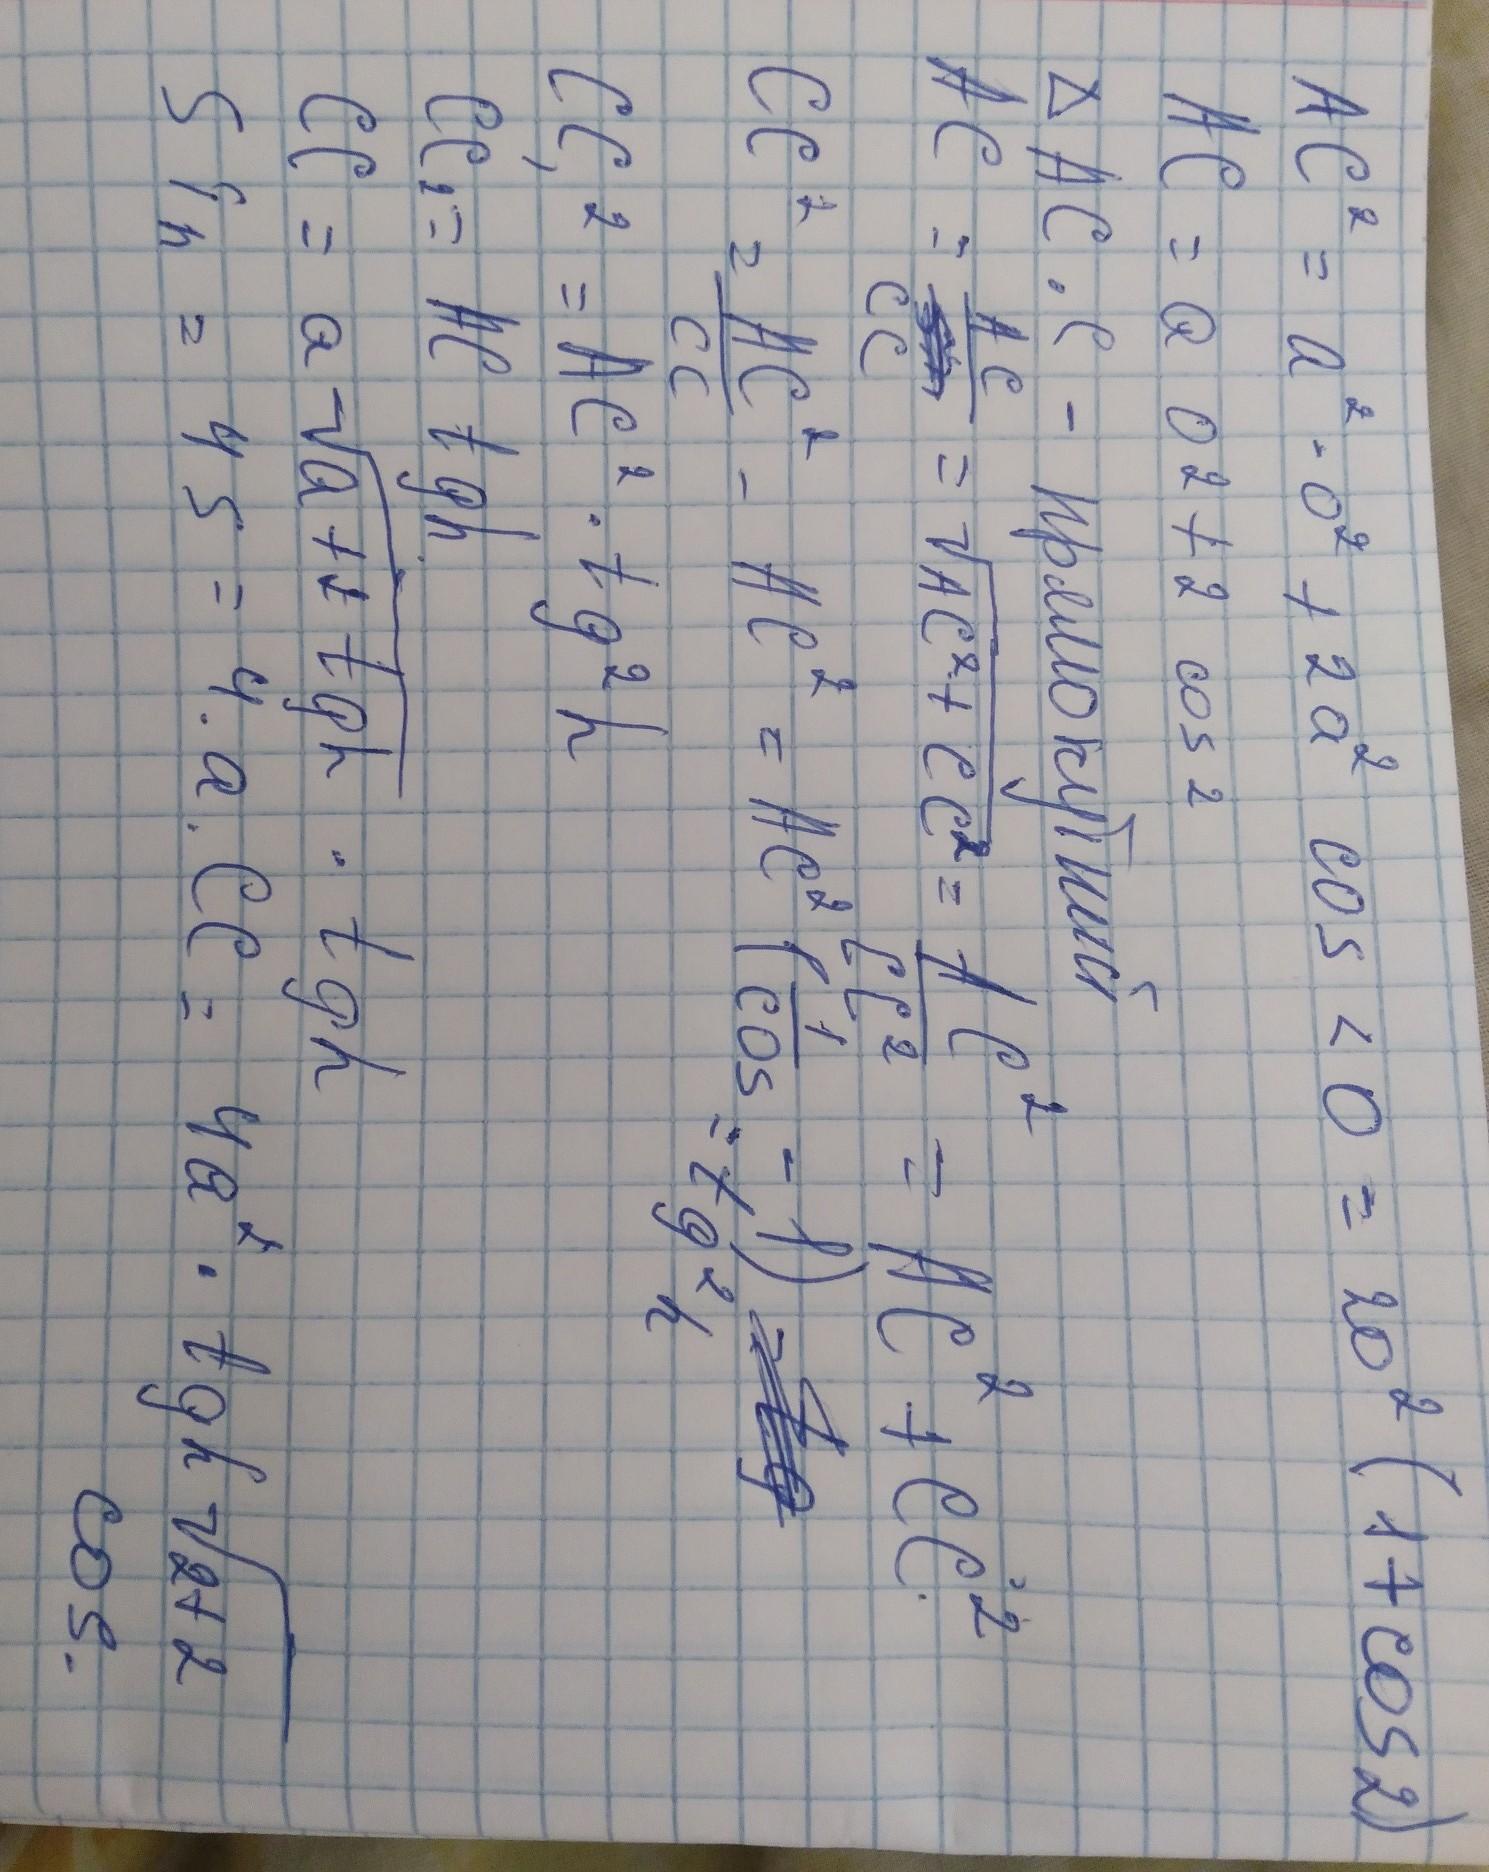 AC² = a² · 0² + 2a² cos < 0 = 20² (1 + cos 2)
AC = a 0 2 + 2 cos 2
Δ AC . C - прямокутний
AC = AC/CC = √AC² + CC² = AC²/CC² = AC² + CC²
CC² = AC²/CC - AC² = AC² (1/cos - 1) = tg² h
CC₁² = AC² · tg² h
CC₁ = AC tgh
CC = a √a + 2 tgh · tgh
Sin = 4S = 4 · a · CC = 4a² · tgh √2 + 2
cos.